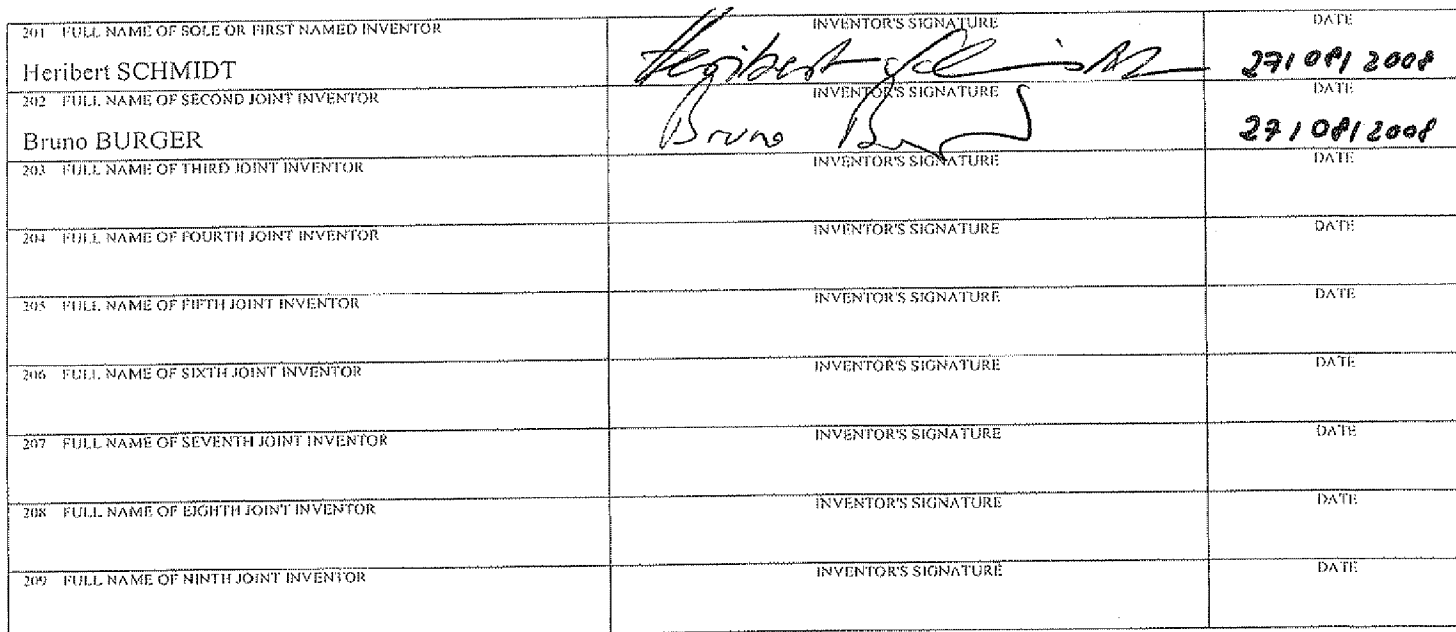 201 FULL NAME OF SOLE OR FIRST NAMED INVENTOR INVENTOR'S SIGNATURE DATE
Heribert SCHMIDT Heribert Schmidt 27/08/2008
202 FULL NAME OF SECOND JOINT INVENTOR INVENTOR'S SIGNATURE DATE
Bruno BURGER Bruno Burger 27/08/2008
203 FULL NAME OF THIRD JOINT INVENTOR INVENTOR'S SIGNATURE DATE
204 FULL NAME OF FOURTH JOINT INVENTOR INVENTOR'S SIGNATURE DATE
205 FULL NAME OF FIFTH JOINT INVENTOR INVENTOR'S SIGNATURE DATE
206 FULL NAME OF SIXTH JOINT INVENTOR INVENTOR'S SIGNATURE DATE
207 FULL NAME OF SEVENTH JOINT INVENTOR INVENTOR'S SIGNATURE DATE
208 FULL NAME OF EIGHTH JOINT INVENTOR INVENTOR'S SIGNATURE DATE
209 FULL NAME OF NINTH JOINT INVENTOR INVENTOR'S SIGNATURE DATE